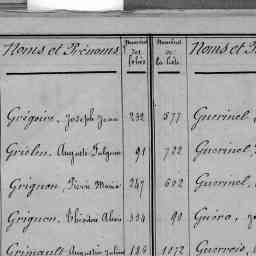 Noms et Prénoms Numéros des lots Numéros de la liste Noms et
Grégoire, Joseph Jean 232 577 Guerinel,
91 722 Guerinel,
Grignon, Pierre Marie 247 602 Guerinel,
Grignon, Théodore 334 90
Grimault, Augustin Julien 186 1172